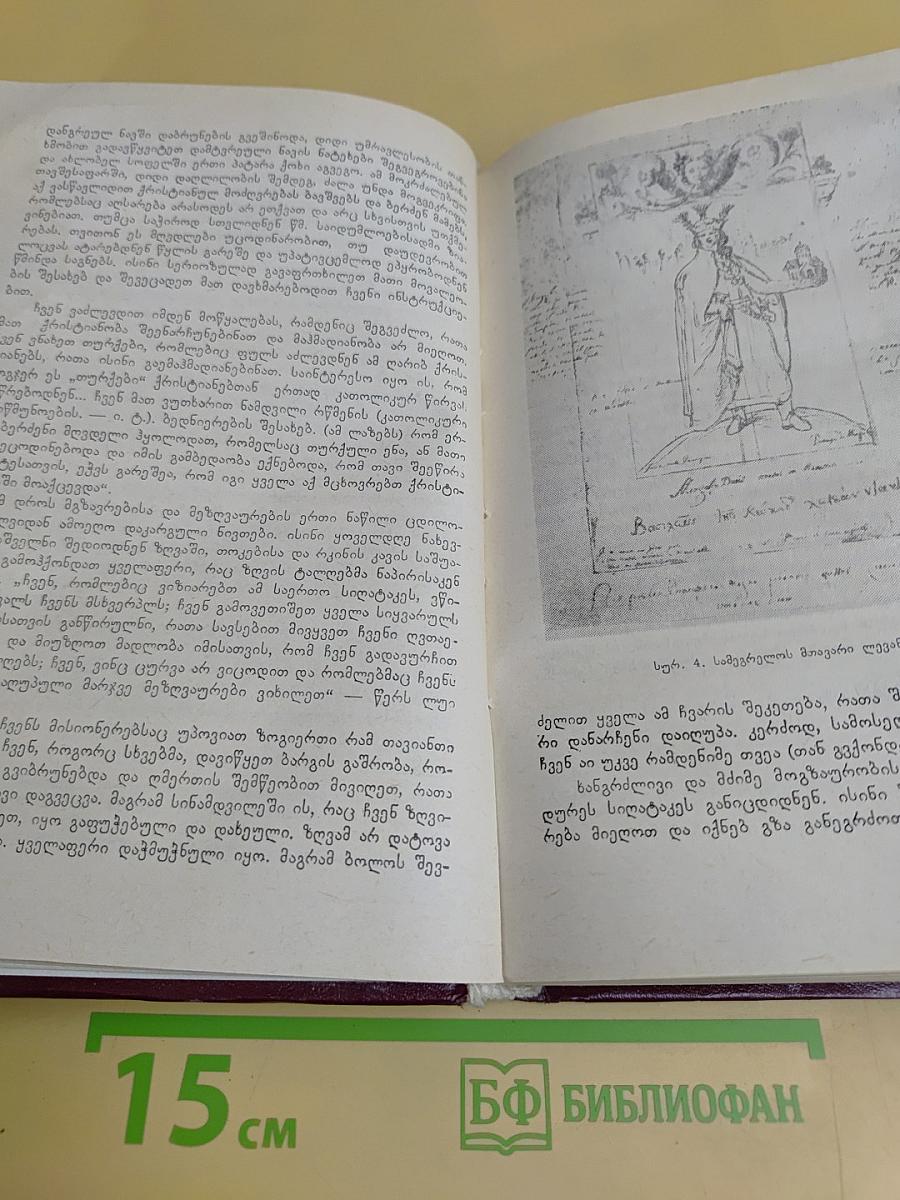 დანგრეულ ნავში დაბრუნების გვეშინოდა, დიდი უმრავლესობის
ხმობით გადავწყვიტეთ დამტვრეული ნავის ნატეხები შეგვეგროვებინა
და ახლობელ სოფელში ერთი პატარა ქოხი აგვეგო. ამ მოკრძალებულ
თავშესაფარში, დიდი დაღლილობის შემდეგ, ძალა უნდა მოგვეკრიფა.
აქ ვასწავლიდით ქრისტიანულ მოძღვრებას ბავშვებს და ბერძენ მამებს,
რომლებსაც აღსარება არასოდეს არ ეთქვათ და არც სხვისთვის
ვინებიათ. თუმცა საჭიროდ სთვლიდნენ წმ. საიდუმლოებისადმი
რებას. თვითონ ეს მღვდლები უცოდინარობით, თუ დაუდევრობით
ლოცვას ატარებდნენ წყლის გარეშე და უპატივცემლოდ ეპყრობოდნენ
წმინდა საგნებს. ისინი სერიოზულად გავაფრთხილეთ მათი მოვალეო-
ბის შესახებ და შევეცადეთ მათ დავხმარებოდით ჩვენი ინსტრუქციე-
ბით.
ჩვენ ვაძლევდით იმდენ მოწყალებას, რამდენიც შეგვეძლო, რათა
მათ ქრისტიანობა შეენარჩუნებინათ და მაჰმადიანობა არ მიეღოთ.
ვენ ვნახეთ თურქები, რომლებიც ფულს აძლევდნენ ამ ღარიბ ქრის-
იანებს, რათა ისინი გაემაჰმადიანებინათ. საინტერესო იყო ის, რომ
ოგჯერ ეს „თურქები“ ქრისტიანებთან ერთად კათოლიკურ წირვას
წრებოდნენ... ჩვენ მათ ვუთხარით ნამდვილი რწმენის (კათოლიკური
რწმუნოების. — ი. ტ.). ბედნიერების შესახებ. (ამ ლაზებს) რომ ერ-
ბერძენი მღვდელი ჰყოლოდათ, რომელსაც თურქული ენა, ან მათი
ეცოდინებოდა და იმის გამბედაობა ექნებოდა, რომ თავი შეეწირა
ტესათვის, ეჭვს გარეშეა, რომ იგი ყველა აქ მცხოვრებთ ქრისტი-
ში მოაქცევდა“.
მ დროს მგზავრებისა და მეზღვაურების ერთი ნაწილი ცდილო-
ღვიდან ამოეღო დაკარგული ნივთები. ისინი ყოველდღე ნახევ-
შველნი შედიოდნენ ზღვაში, თოკებისა და რკინის კავის საშუა-
გამოჰქონდათ ყველაფერი, რაც ზღვის ტალღებმა ნაპირისაკენ
„ჩვენ, რომლებიც ვიზიარებთ ამ საერთო სიღატაკეს, ვწი-
ვალს ჩვენს მსხვერპლს; ჩვენ გამოვეთიშეთ ყველა სიყვარულს
ისათვის განწირულნი, რათა სავსებით მივყვეთ ჩვენი ღვთაე-
და მიუზღოთ მადლობა იმისათვის, რომ ჩვენ გადავურჩით
ღებს; ჩვენ, ვინც ცურვა არ ვიცოდით და რომლებმაც ჩვენს
აღუპული მარჯვე მეზღვაურები ვიხილეთ“ — წერს ლუი
ჩვენს მისიონერებსაც უპოვიათ ზოგიერთი რამ თავიანთი
ჩვენ, როგორც სხვებმა, დავიწყეთ ბარგის გაშრობა, რო-
გვიბრუნებდა და ღმერთის შემწეობით მივიღეთ, რათა
ვი დაგვეცვა. მაგრამ სინამდვილეში ის, რაც ჩვენ ზღვი-
ეთ, იყო გაფუჭებული და დახეული. ზღვამ არ დატოვა
ყველაფერი დაჭმუჭნული იყო. მაგრამ ბოლოს შევ-
სურ. 4. სამეგრელოს მთავარი ლევან
ძელით ყველა ამ ჩვარის შეკეთება, რათა
რი დანარჩენი დაიღუპა. კერძოდ, სამოსელ
ჩვენ აი უკვე რამდენიმე თვეა (თან გვქონდა
ხანგრძლივი და მძიმე მოგზაურობის
დურეს სიღატაკეს განიცდიდნენ. ისინი
რება მიეღოთ და იქნებ გზა განეგრძოთ
15 см
БФ БИБЛИОФАН